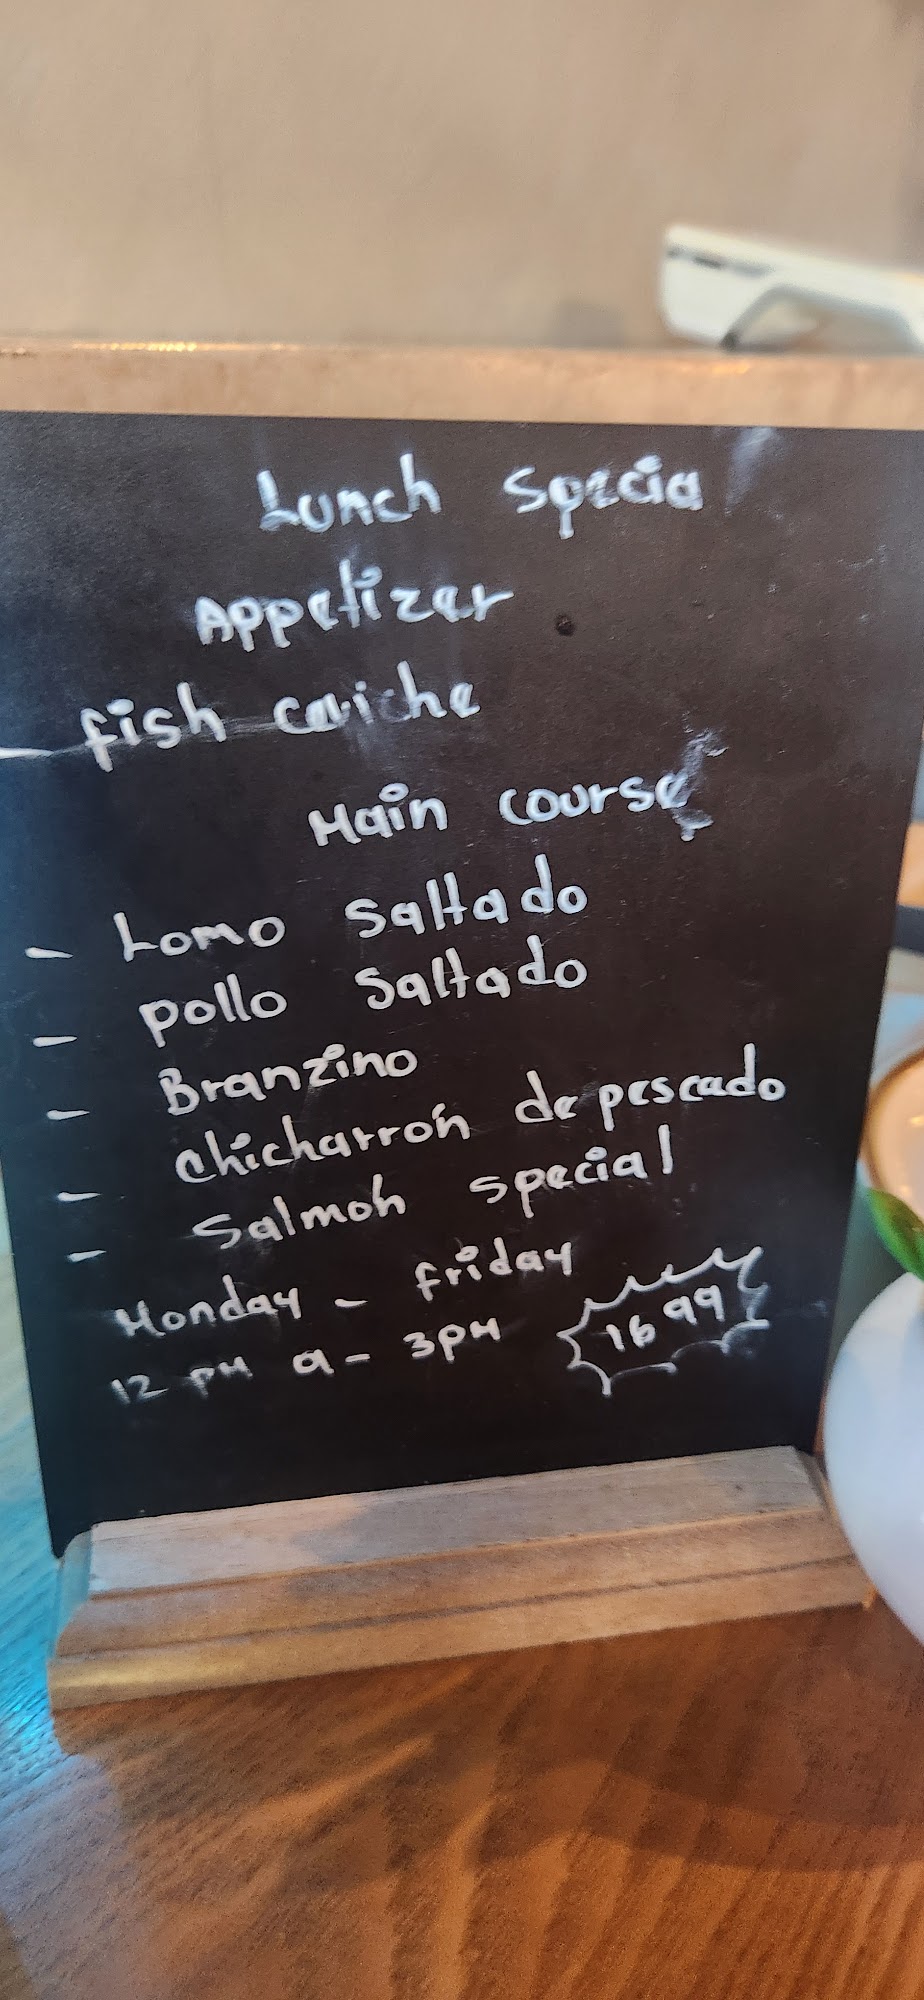 Lunch Specia
Appetizer
- fish ceviche
Main course
- Lomo Saltado
- pollo Saltado
- Branzino
- chicharrón de pescado
- Salmon special
Monday - friday
12 pm a - 3pm
16 99